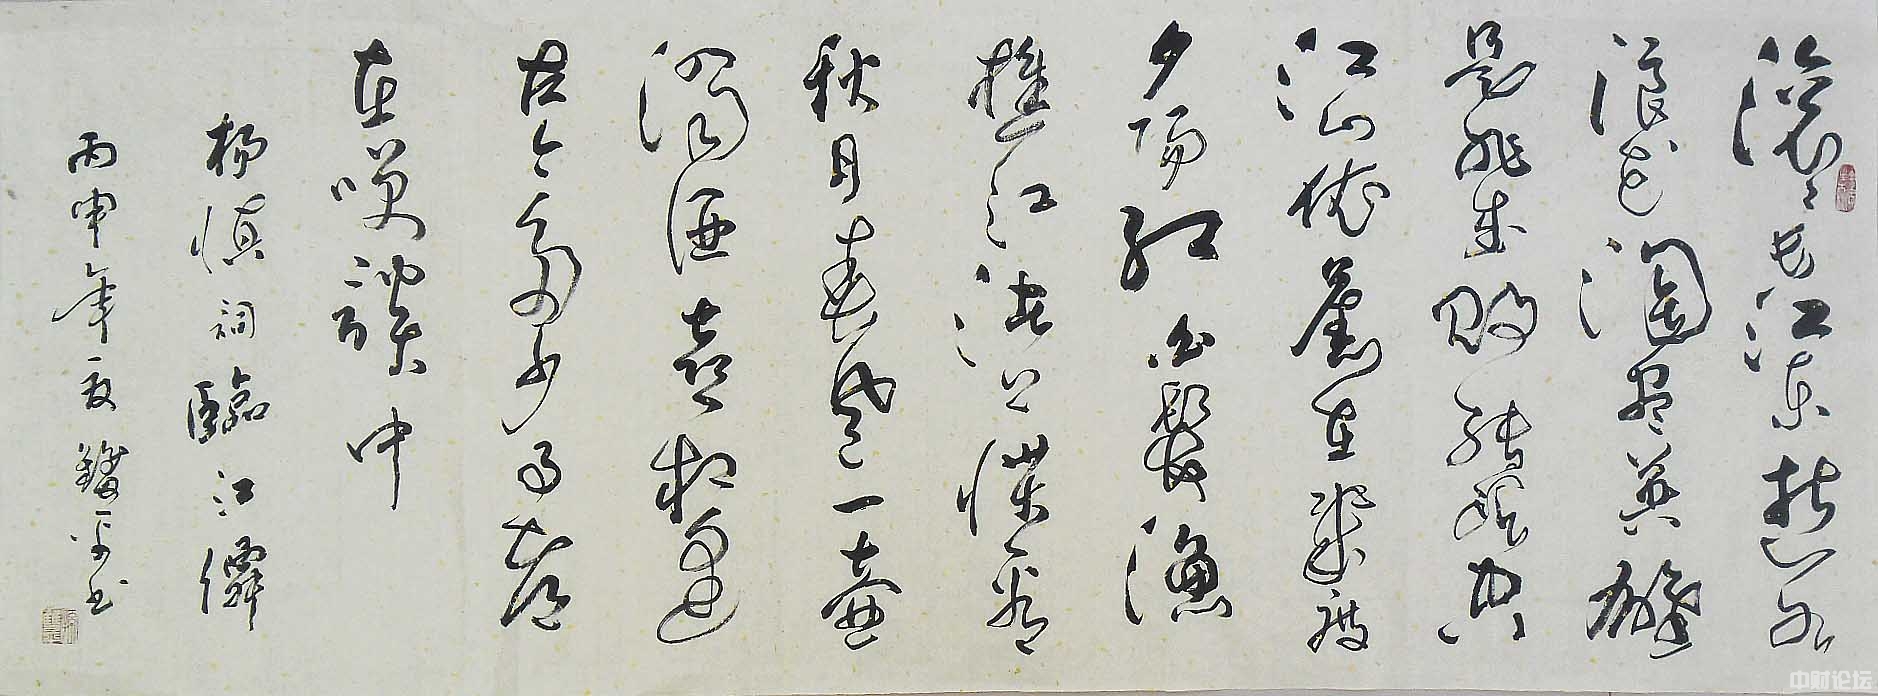 滚々长江东逝水
浪花淘尽英雄
是非成败转头空
江山依舊在幾度
夕陽红白髮漁
樵江渚上惯看
秋月春风一壶
濁酒喜相逢
古今多少事都
在咲談中
杨慎词臨江僊
丙申年夏平书
中财论坛